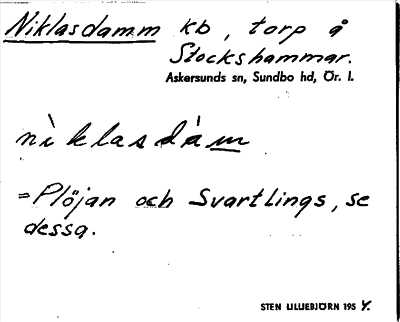 Niklasdamm kb, torp å
Stockshammar.
Askersunds sn, Sundbo hd, Ör. l.
nìklasdàm
=Plöjan och Svartlings, se
dessa.
STEN LILLIEBJÖRN 195 4.